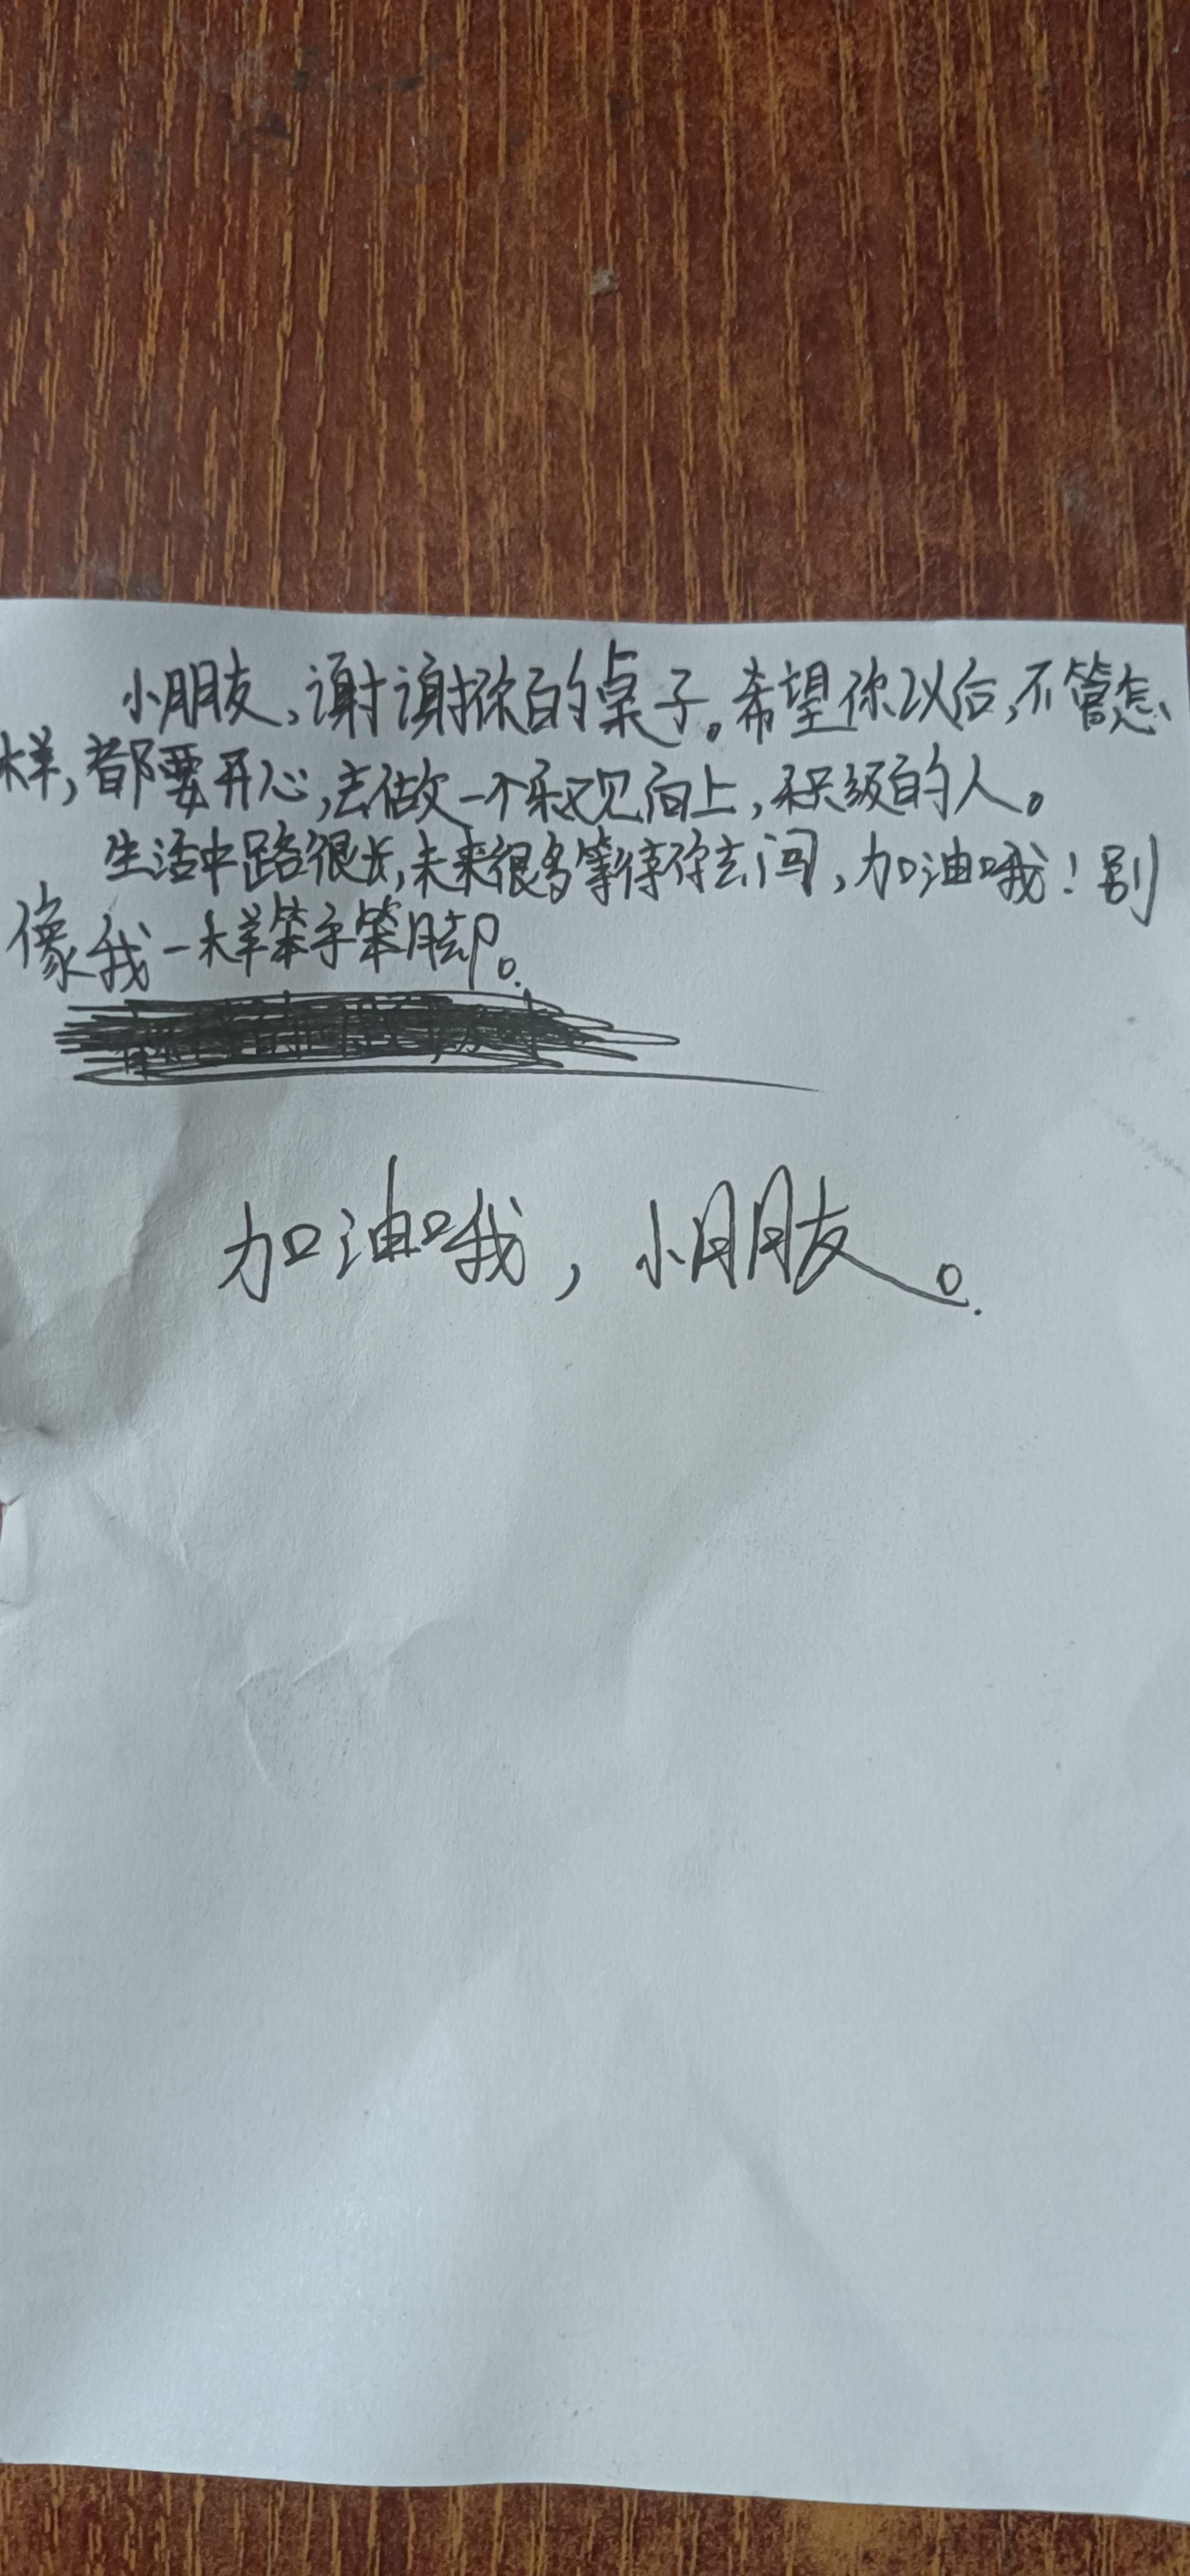 小朋友,谢谢你的桌子。希望你以后,不管怎
样,都要开心,去做一个乐观向上,积极的人。
生活中路很长,未来很多等待你去闯,加油哦!别
像我一样笨手笨脚。
加油哦,小朋友。